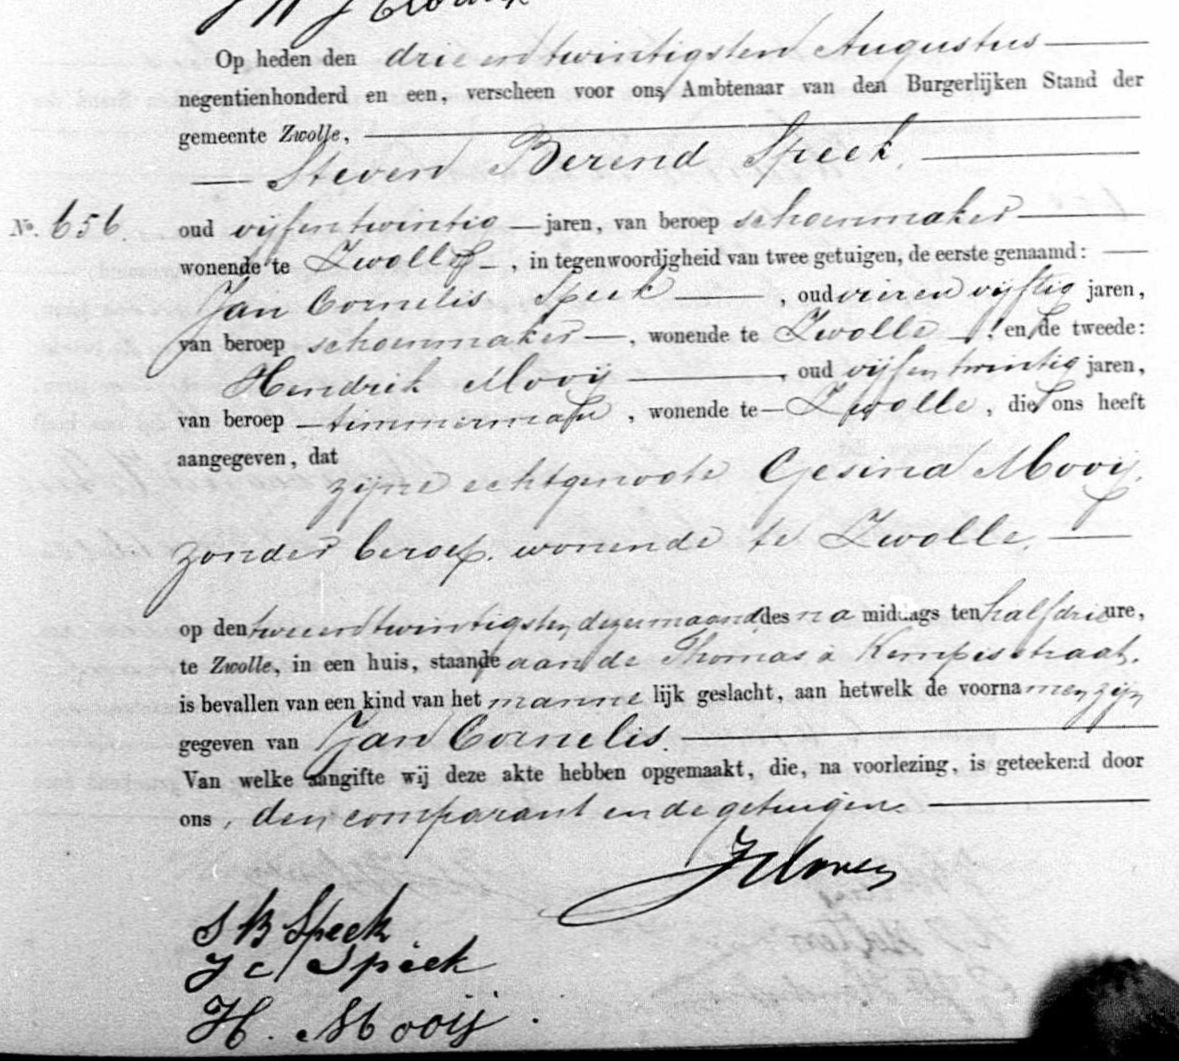 Op heden den drie en twintigsten Augustus
negentienhonderd en een, verscheen voor ons Ambtenaar van den Burgerlijken Stand der
gemeente Zwolle,
Steven Berend Speek.
No. 656.
oud vijfentwintig jaren, van beroep schoenmaker
wonende te Zwolle, in tegenwoordigheid van twee getuigen, de eerste genaamd:
Jan Cornelis Speek, oud vieren vijftig jaren,
van beroep schoenmaker, wonende te Zwolle en de tweede:
Hendrik Mooij, oud vijfentwintig jaren,
van beroep timmerman, wonende te Zwolle, die ons heeft
aangegeven, dat
zijne echtgenoote Gesina Mooij,
zonder beroep, wonende te Zwolle,
op den twee en twintigsten dezer maand des na middags ten half drie ure,
te Zwolle, in een huis, staande aan de Thomas à Kempisstraat.
is bevallen van een kind van het mannelijk geslacht, aan hetwelk de voornamen zijn
gegeven van Jan Cornelis.
Van welke aangifte wij deze akte hebben opgemaakt, die, na voorlezing, is geteekend door
ons, den comparant en de getuigen.
S B Speek
J C Speek
H. Mooij.